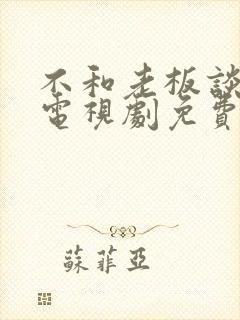 不和老板談
電視劇免費
蘇菲亞